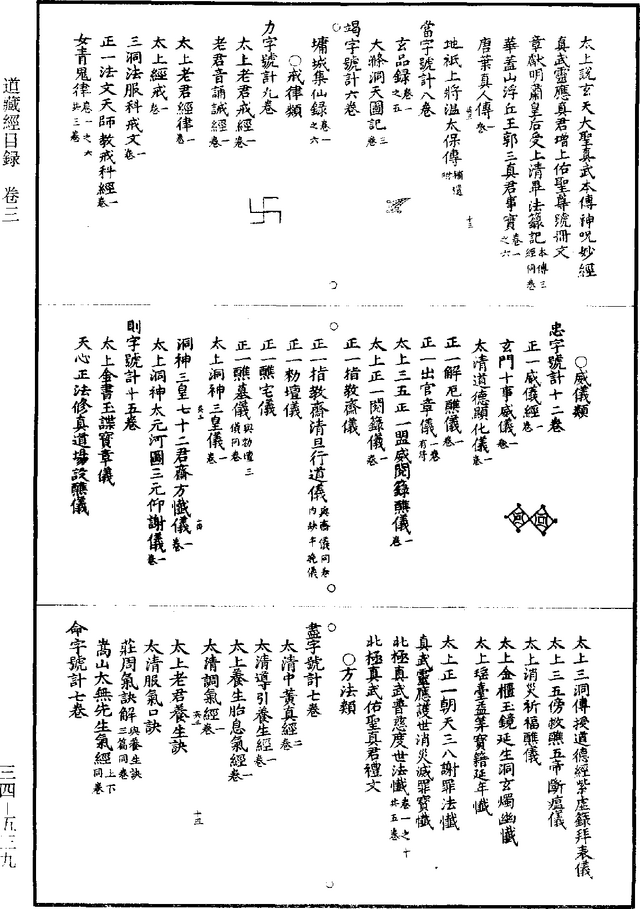 道藏經目録 卷三
三四—五三九
太上說玄天大聖真武本傳神呪妙經
真武靈應真君增上佑聖尊號冊文
章獻明肅皇后受上清畢法籙記 本傳三經同卷
華蓋山浮丘王郭三真君事實 卷一之六
唐葉真人傳 一卷
地祇上將溫太保傳 補遺附
當字號計八卷
玄品録 卷一之五
大滌洞天圖記 三卷
竭字號計六卷
墉城集仙録 卷一之六
○戒律類
力字號計九卷
太上老君戒經 一卷
老君音誦誡經 一卷
太上老君經律 一卷
太上經戒 一卷
三洞法服科戒文 一卷
正一法文天師教戒科經 一卷
女青鬼律 卷一之六 共三卷
○威儀類
忠字號計十二卷
正一威儀經 一卷
玄門十事威儀 一卷
太清道德顯化儀 一卷
正一解厄醮儀 一卷
正一出官章儀 一卷有序
太上三五正一盟威閱籙醮儀 一卷
太上正一閱籙儀 一卷
正一指教齋儀
正一指教齋清旦行道儀 與齋儀同卷內缺午晚儀
正一勑壇儀
正一醮宅儀
正一醮墓儀 與勑壇三儀同卷
太上洞神三皇儀 一卷
洞神三皇七十二君齋方懺儀 一卷
太上洞神太元河圖三元仰謝儀 一卷
則字號計十五卷
太上金書玉諜寶章儀
天心正法修真道場設醮儀
太上三洞傳授道德經紫虛籙拜表儀
太上三五傍救醮五帝斷瘟儀
太上消災祈福醮儀
太上金櫃玉鏡延生洞玄燭幽懺
太上瑤臺益筭寶籍延年懺
太上正一朝天三八謝罪法懺
真武靈應護世消災滅罪寶懺
北極真武普慈度世法懺 卷一之十 共五卷
北極真武佑聖真君禮文
○方法類
盡字號計七卷
太清中黃真經 二卷
太清導引養生經 一卷
太上養生胎息氣經 一卷
太清調氣經 一卷
太上老君養生訣
太清服氣口訣
莊周氣訣解 與養生訣三篇同卷
嵩山太無先生氣經 上下同卷
命字號計七卷